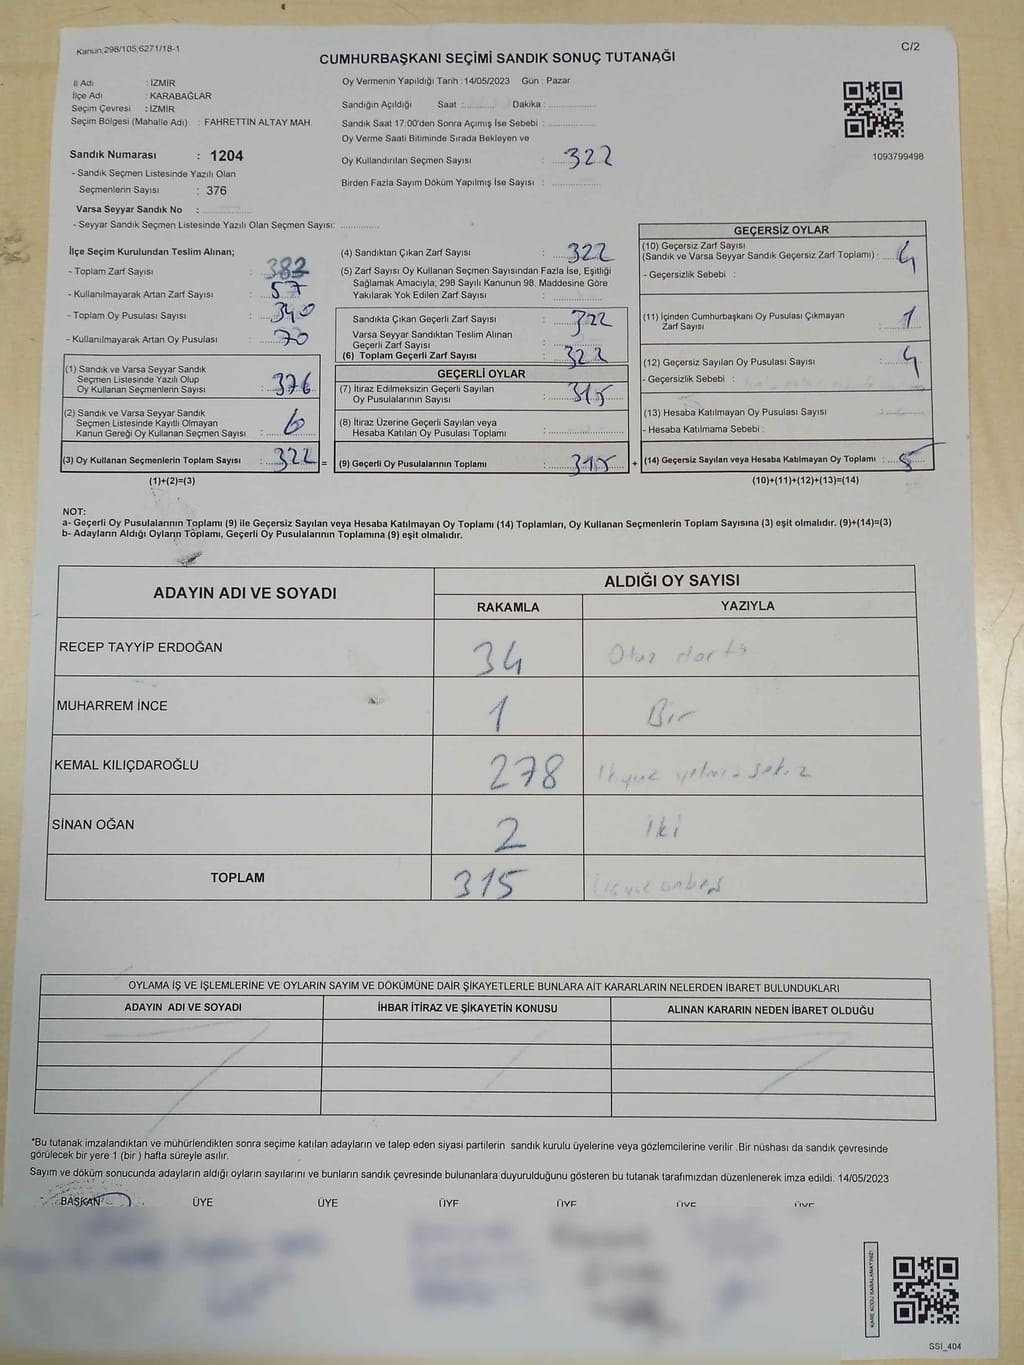 Kanun;298/105,6271/18-1
C/2
CUMHURBAŞKANI SEÇİMİ SANDIK SONUÇ TUTANAĞI
İl Adı : İZMİR
İlçe Adı : KARABAĞLAR
Seçim Çevresi : İZMİR
Seçim Bölgesi (Mahalle Adı) : FAHRETTİN ALTAY MAH.
Sandık Numarası : 1204
- Sandık Seçmen Listesinde Yazılı Olan
Seçmenlerin Sayısı : 376
Varsa Seyyar Sandık No :
- Seyyar Sandık Seçmen Listesinde Yazılı Olan Seçmen Sayısı:
Oy Vermenin Yapıldığı Tarih : 14/05/2023 Gün : Pazar
Sandığın Açıldığı Saat : Dakika :
Sandık Saat 17:00'den Sonra Açmış İse Sebebi :
Oy Verme Saati Bitiminde Sırada Bekleyen ve
Oy Kullandırılan Seçmen Sayısı : 322
Birden Fazla Sayım Döküm Yapılmış İse Sayısı :
1093799498
İlçe Seçim Kurulundan Teslim Alınan;
- Toplam Zarf Sayısı : 382
- Kullanılmayarak Artan Zarf Sayısı : 57
- Toplam Oy Pusulası Sayısı : 340
- Kullanılmayarak Artan Oy Pusulası : 70
(1) Sandık ve Varsa Seyyar Sandık
Seçmen Listesinde Yazılı Olup
Oy Kullanan Seçmenlerin Sayısı : 376
(2) Sandık ve Varsa Seyyar Sandık
Seçmen Listesinde Kayıtlı Olmayan
Kanun Gereği Oy Kullanan Seçmen Sayısı : 6
(3) Oy Kullanan Seçmenlerin Toplam Sayısı : 322 =
(1)+(2)=(3)
(4) Sandıktan Çıkan Zarf Sayısı : 322
(5) Zarf Sayısı Oy Kullanan Seçmen Sayısından Fazla İse, Eşitliği
Sağlamak Amacıyla; 298 Sayılı Kanunun 98. Maddesine Göre
Yakılarak Yok Edilen Zarf Sayısı :
Sandıkta Çıkan Geçerli Zarf Sayısı : 322
Varsa Seyyar Sandıktan Teslim Alınan
Geçerli Zarf Sayısı :
(6) Toplam Geçerli Zarf Sayısı : 322
GEÇERLİ OYLAR
(7) İtiraz Edilmeksizin Geçerli Sayılan
Oy Pusulalarının Sayısı : 315
(8) İtiraz Üzerine Geçerli Sayılan veya
Hesaba Katılan Oy Pusulası Toplamı :
(9) Geçerli Oy Pusulalarının Toplamı : 315 +
GEÇERSİZ OYLAR
(10) Geçersiz Zarf Sayısı
(Sandık ve Varsa Seyyar Sandık Geçersiz Zarf Toplamı) : 4
- Geçersizlik Sebebi :
(11) İçinden Cumhurbaşkanı Oy Pusulası Çıkmayan
Zarf Sayısı : 1
(12) Geçersiz Sayılan Oy Pusulası Sayısı : 4
- Geçersizlik Sebebi :
(13) Hesaba Katılmayan Oy Pusulası Sayısı :
- Hesaba Katılmama Sebebi :
(14) Geçersiz Sayılan veya Hesaba Katılmayan Oy Toplamı : 5
(10)+(11)+(12)+(13)=(14)
NOT:
a- Geçerli Oy Pusulalarının Toplamı (9) ile Geçersiz Sayılan veya Hesaba Katılmayan Oy Toplamı (14) Toplamları, Oy Kullanan Seçmenlerin Toplam Sayısına (3) eşit olmalıdır. (9)+(14)=(3)
b- Adayların Aldığı Oyların Toplamı, Geçerli Oy Pusulalarının Toplamına (9) eşit olmalıdır.
ADAYIN ADI VE SOYADI
ALDIĞI OY SAYISI
RAKAMLA YAZIYLA
RECEP TAYYİP ERDOĞAN 34 Otuz dört
MUHARREM İNCE 1 Bir
KEMAL KILIÇDAROĞLU 278 ikiyüz yetmiş sekiz
SİNAN OĞAN 2 iki
TOPLAM 315
OYLAMA İŞ VE İŞLEMLERİNE VE OYLARIN SAYIM VE DÖKÜMÜNE DAİR ŞİKAYETLERLE BUNLARA AİT KARARLARIN NELERDEN İBARET BULUNDUKLARI
ADAYIN ADI VE SOYADI İHBAR İTİRAZ VE ŞİKAYETİN KONUSU ALINAN KARARIN NEDEN İBARET OLDUĞU
*Bu tutanak imzalandıktan ve mühürlendikten sonra seçime katılan adayların ve talep eden siyasi partilerin sandık kurulu üyelerine veya gözlemcilerine verilir .Bir nüshası da sandık çevresinde
görülecek bir yere 1 (bir ) hafta süreyle asılır.
Sayım ve döküm sonucunda adayların aldığı oyların sayılarını ve bunların sandık çevresinde bulunanlara duyurulduğunu gösteren bu tutanak tarafımızdan düzenlenerek imza edildi. 14/05/2023
BAŞKAN ÜYE ÜYE ÜYE ÜYE ÜYE ÜYE
KARE KODU KARALAMAYINIZ!
SSI_404